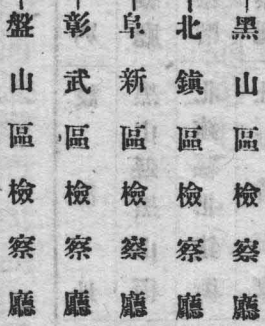 黑山區檢察廳
北鎭區檢察廳
阜新區檢察廳
彰武區檢察廳
盤山區檢察廳